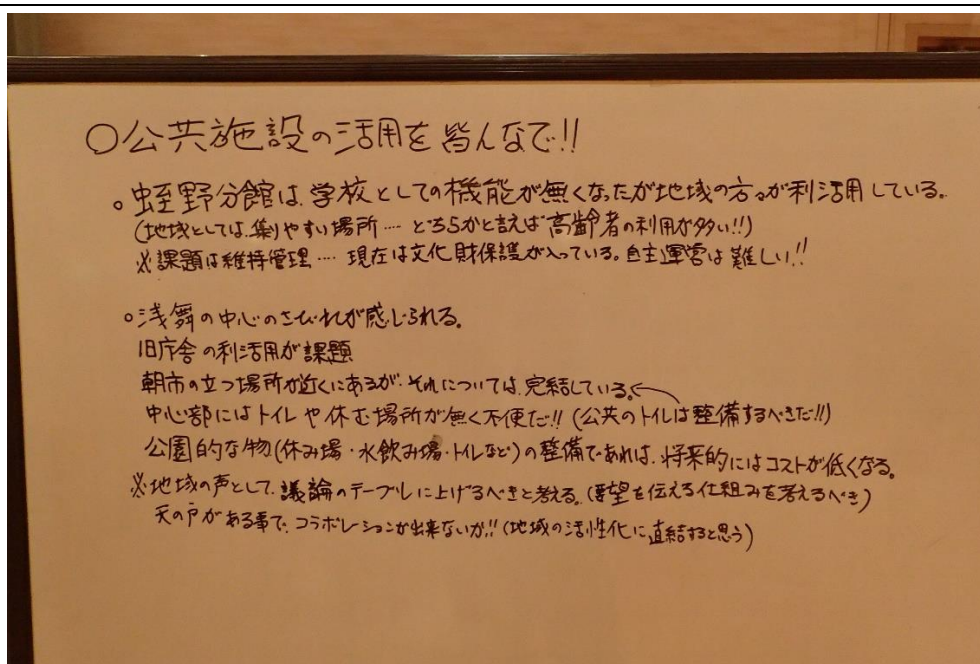 ○公共施設の活用を皆んなで!!
○蛭野分館は、学校としての機能が無くなったが地域の方々が利活用している。
(地域としては、集りやすい場所…どちらかと言えば高齢者の利用が多い!!)
※課題は維持管理…現在は文化財保護が入っている。自主運営は難しい!!
○浅舞の中心のさびれが感じられる。
旧庁舎の利活用が課題
朝市の立つ場所が近くにあるが、それについては、完結している。←
中心部にはトイレや休む場所が無く不便だ!!(公共のトイレは整備するべきだ!!)
公園的な物(休み場・水飲み場・トイレなど)の整備であれば、将来的にはコストが低くなる。
※地域の声として、議論のテーブルに上げるべきと考える。(要望を伝える仕組みを考えるべき)
天の戸がある事で、コラボレーションが出来ないか!!(地域の活性化に直結すると思う)